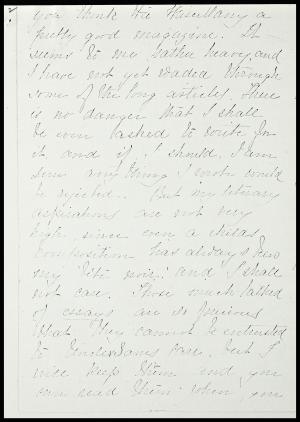 you think the Miscellany a
pretty good magazine. It
seems to me rather heavy, and
I have not yet waded through
some of the long articles. There
is no danger that I shall
be even asked to write for
it, and if I should, I am
sure any thing I wrote would
be rejected. But my literary
aspirations are not very
high, since even a childs
composition has always been
my "bête noir", and I shall
not care. Those much talked
of essays are so precious
that they cannot be entrusted
to Uncle Sams care, but I
will keep them and you
can read them when you